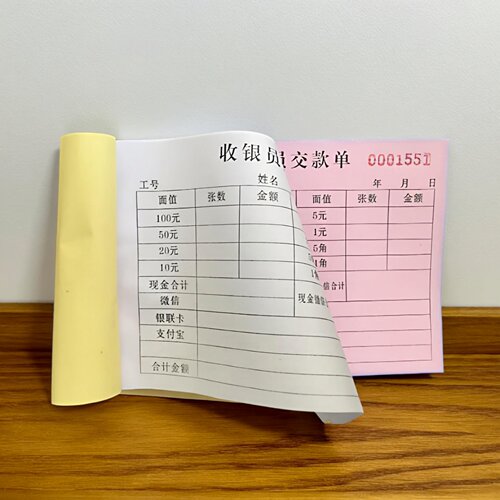 收银员交款单 0001551
工号 姓名 年 月 日
面值 张数 金额 面值 张数 金额
100元 5元
50元 1元
20元 5角
10元 1角
现金合计
微信
银联卡
支付宝
合计金额